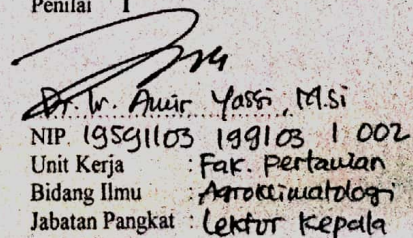 Penilai I
Dr. Ir. Amir Yassi, M.si
NIP. 19591103 199103 1 002
Unit Kerja : Fak. Pertanian
Bidang Ilmu : Agroklimatologi
Jabatan Pangkat : Lektor Kepala